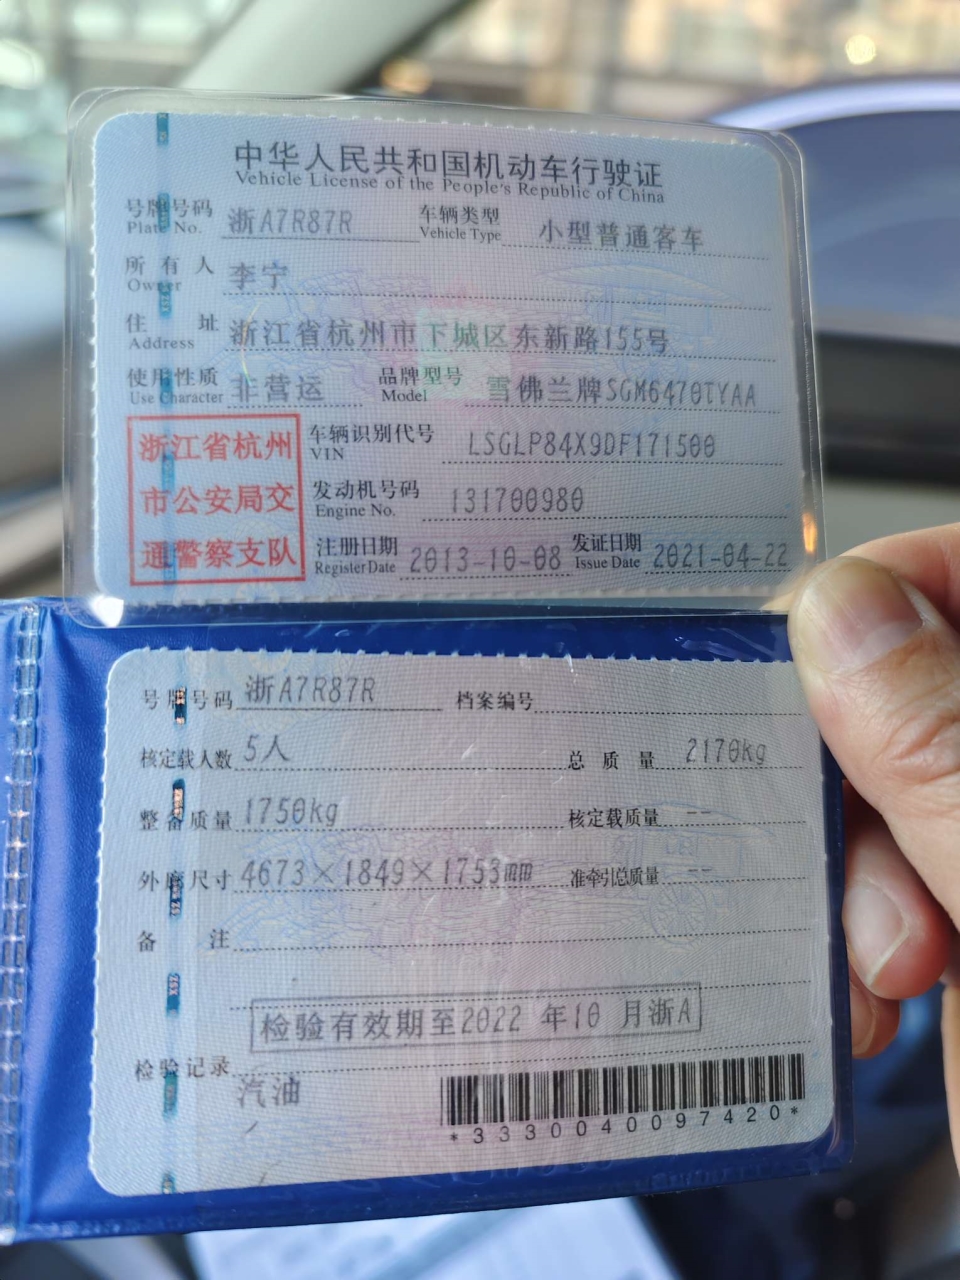 中华人民共和国机动车行驶证
Vehicle License of the People's Republic of China
号牌号码 浙A7R87R 车辆类型 小型普通客车
Plate No. Vehicle Type
所有人 李宁
Owner
住址 浙江省杭州市下城区东新路155号
Address
使用性质 非营运 品牌型号 雪佛兰牌SGM6470TYAA
Use Character Model
浙江省杭州
市公安局交
通警察支队
车辆识别代号 LSGLP84X9DF171500
VIN
发动机号码 131700980
Engine No.
注册日期 2013-10-08 发证日期 2021-04-22
Register Date Issue Date
号牌号码 浙A7R87R 档案编号
核定载人数 5人 总质量 2170kg
整备质量 1750kg 核定载质量 --
外廓尺寸 4673×1849×1753mm 准牵引总质量 --
备注
检验有效期至2022年10月浙A
检验记录
汽油
*3330040097420*